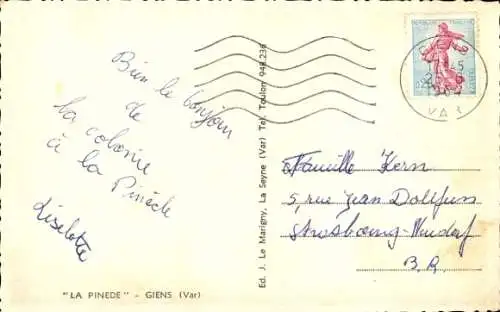 Bien le bonjour
de
la colonie
à la Pinède
Liselotte
"LA PINEDE" - GIENS (Var)
Ed. J. Le Marigny, La Seyne (Var) Tel. Toulon 948.236
VAR
Famille Kern
5, rue Jean Dollfuss
Strasbourg-Neudorf
B. R.